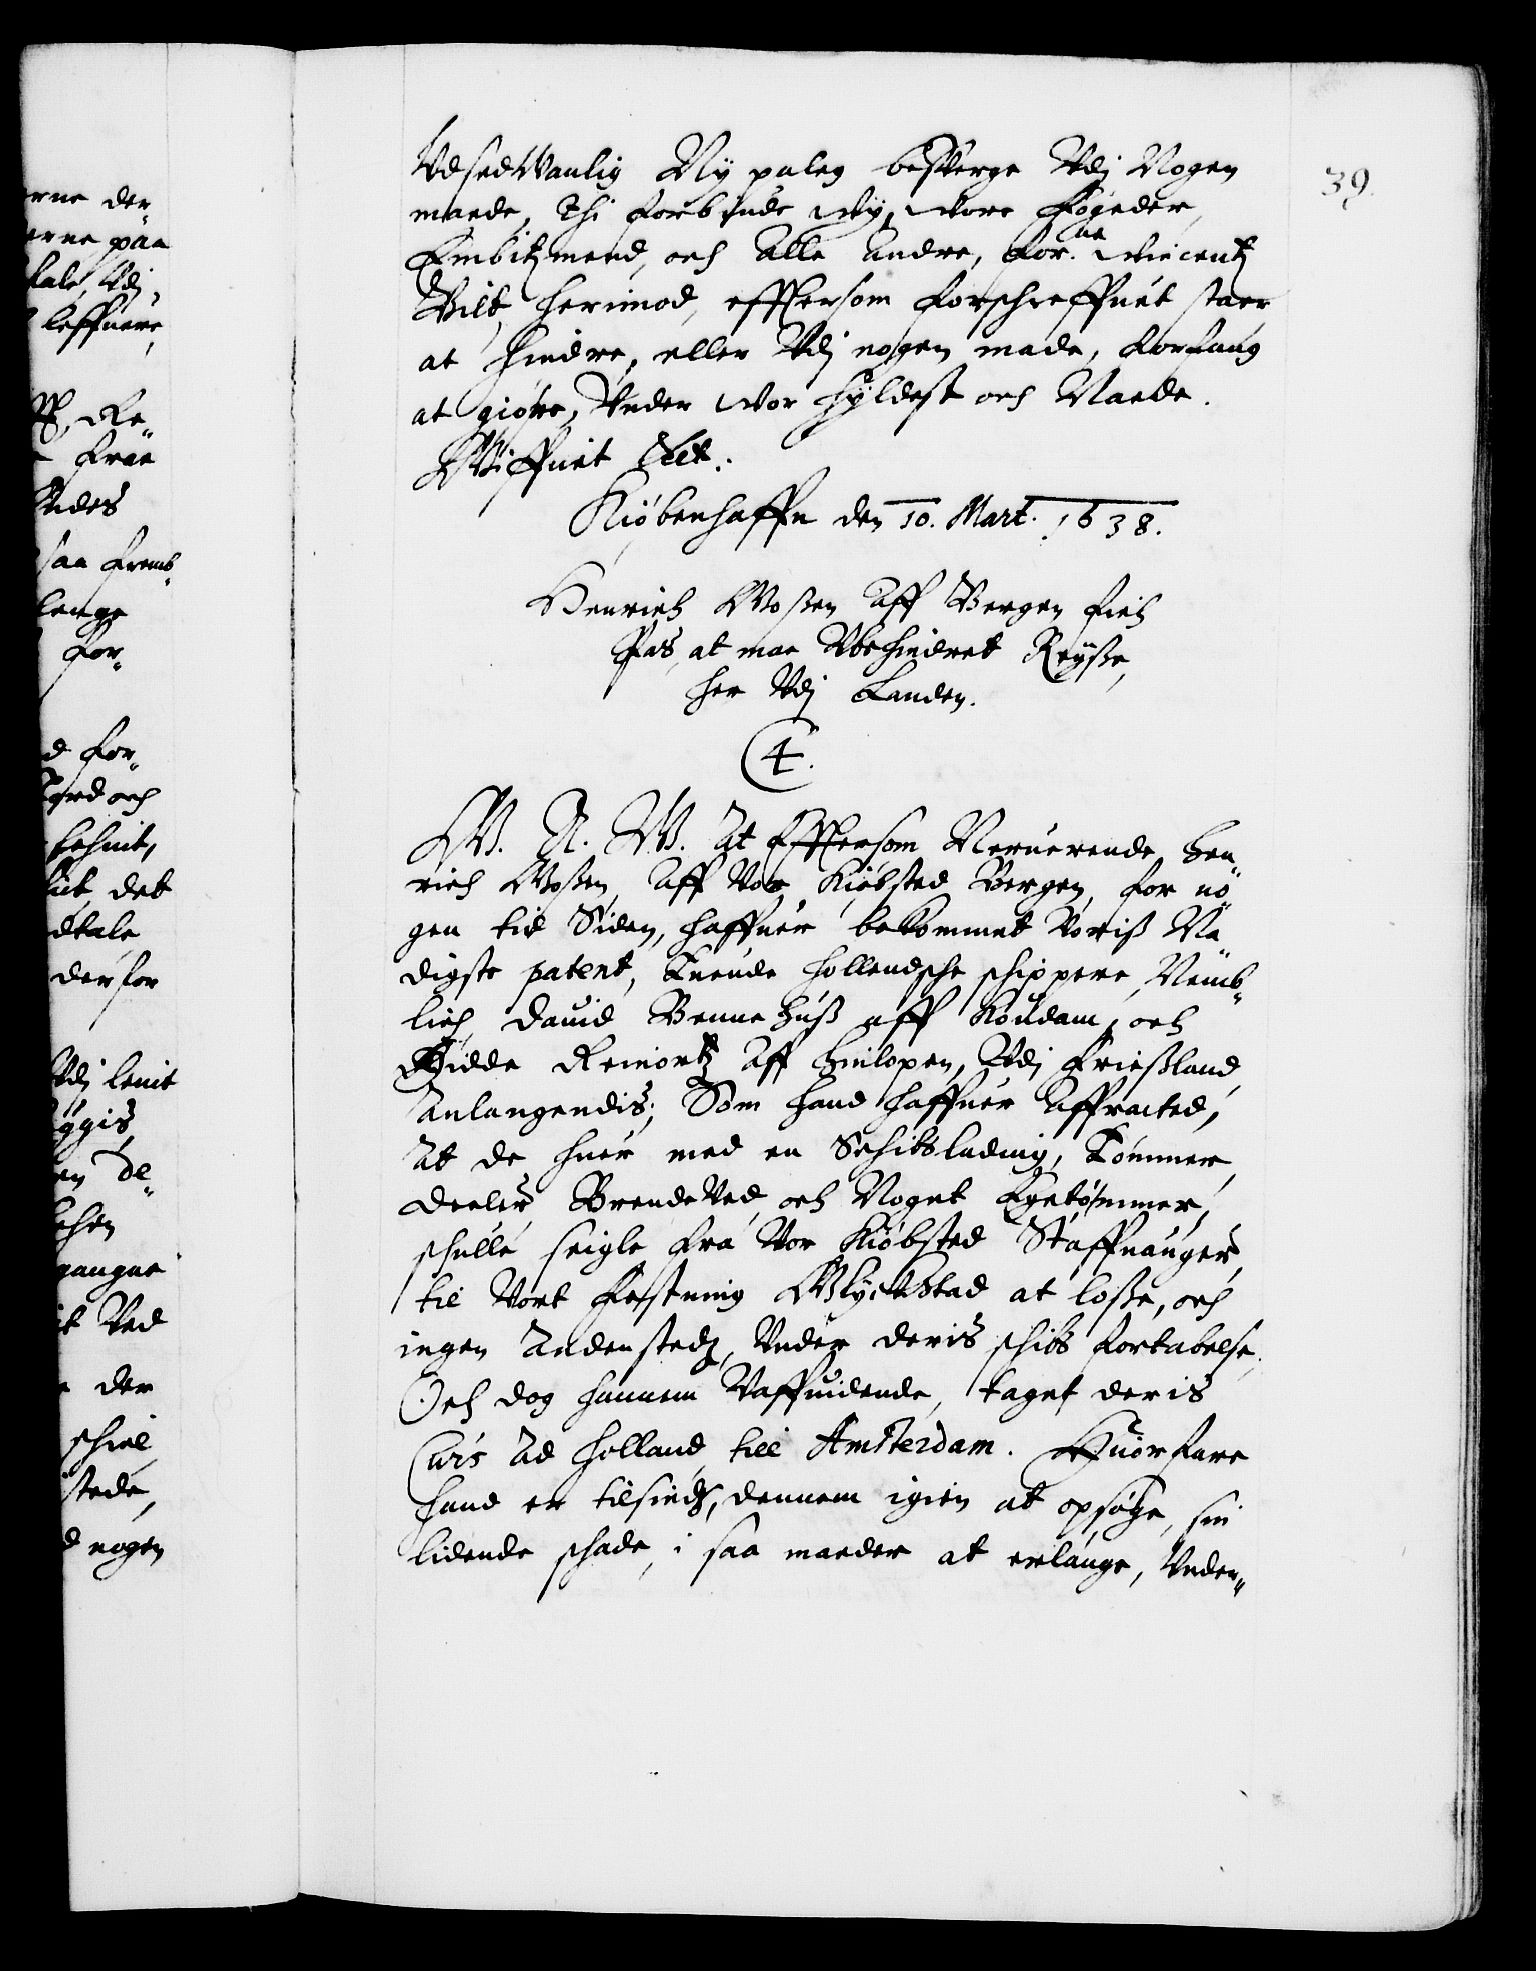 39.
Vdsedwanlig Ny paleg besverge Vdj Nogen
maade, Thi forbiude wy, wore fogeder,
Embitzmend, och alle andre, for:ne Vincentz
Bilt, herimod, effttersom forschreffuet staer
at hindre, eller Vdj nogen made, forfang
at giøre, Vnder wor hyldest och Naade.
Giffuet Vt.
Kiøbenhaffn den 10. Mart. 1638.
Henrich Mossen aff Bergen fich
Pas, at maa Vbehindret Reysse,
her Vdj Landen.
4.
W. A. W. At Efftersom Neruerende Hen"
rich Mossen, aff Vor Kiøbsted Bergen, for no"
gen tid Siden, haffuer bekommet Voris Na"
digste patent, Tuende hollendsche schippere, Nemb"
lich David Bennehuss aff Koudam, och
Hidde Reinortz aff Hinlopen, Vdj Friessland,
Anlangendis, Som hand haffuer affracted,
At de huer med en Schibsladning, Tømmer,
deeler Brendeved, och Noget Egetømmer,
schulle seigle fra Vor Kiøbsted Staffuanger,
til Vort festning Glyckstad at losse, och
ingen Andenstedz, Vnder deris schibs fortabelse,
Och dog hannem Vaffuidende, taget deris
Curs Ad Holland, till Amsterdam. Huorfare
hand er tilsindz, dennem igien at opsøge, sin
lidende schade, i saa maader at erlange, Vnder"